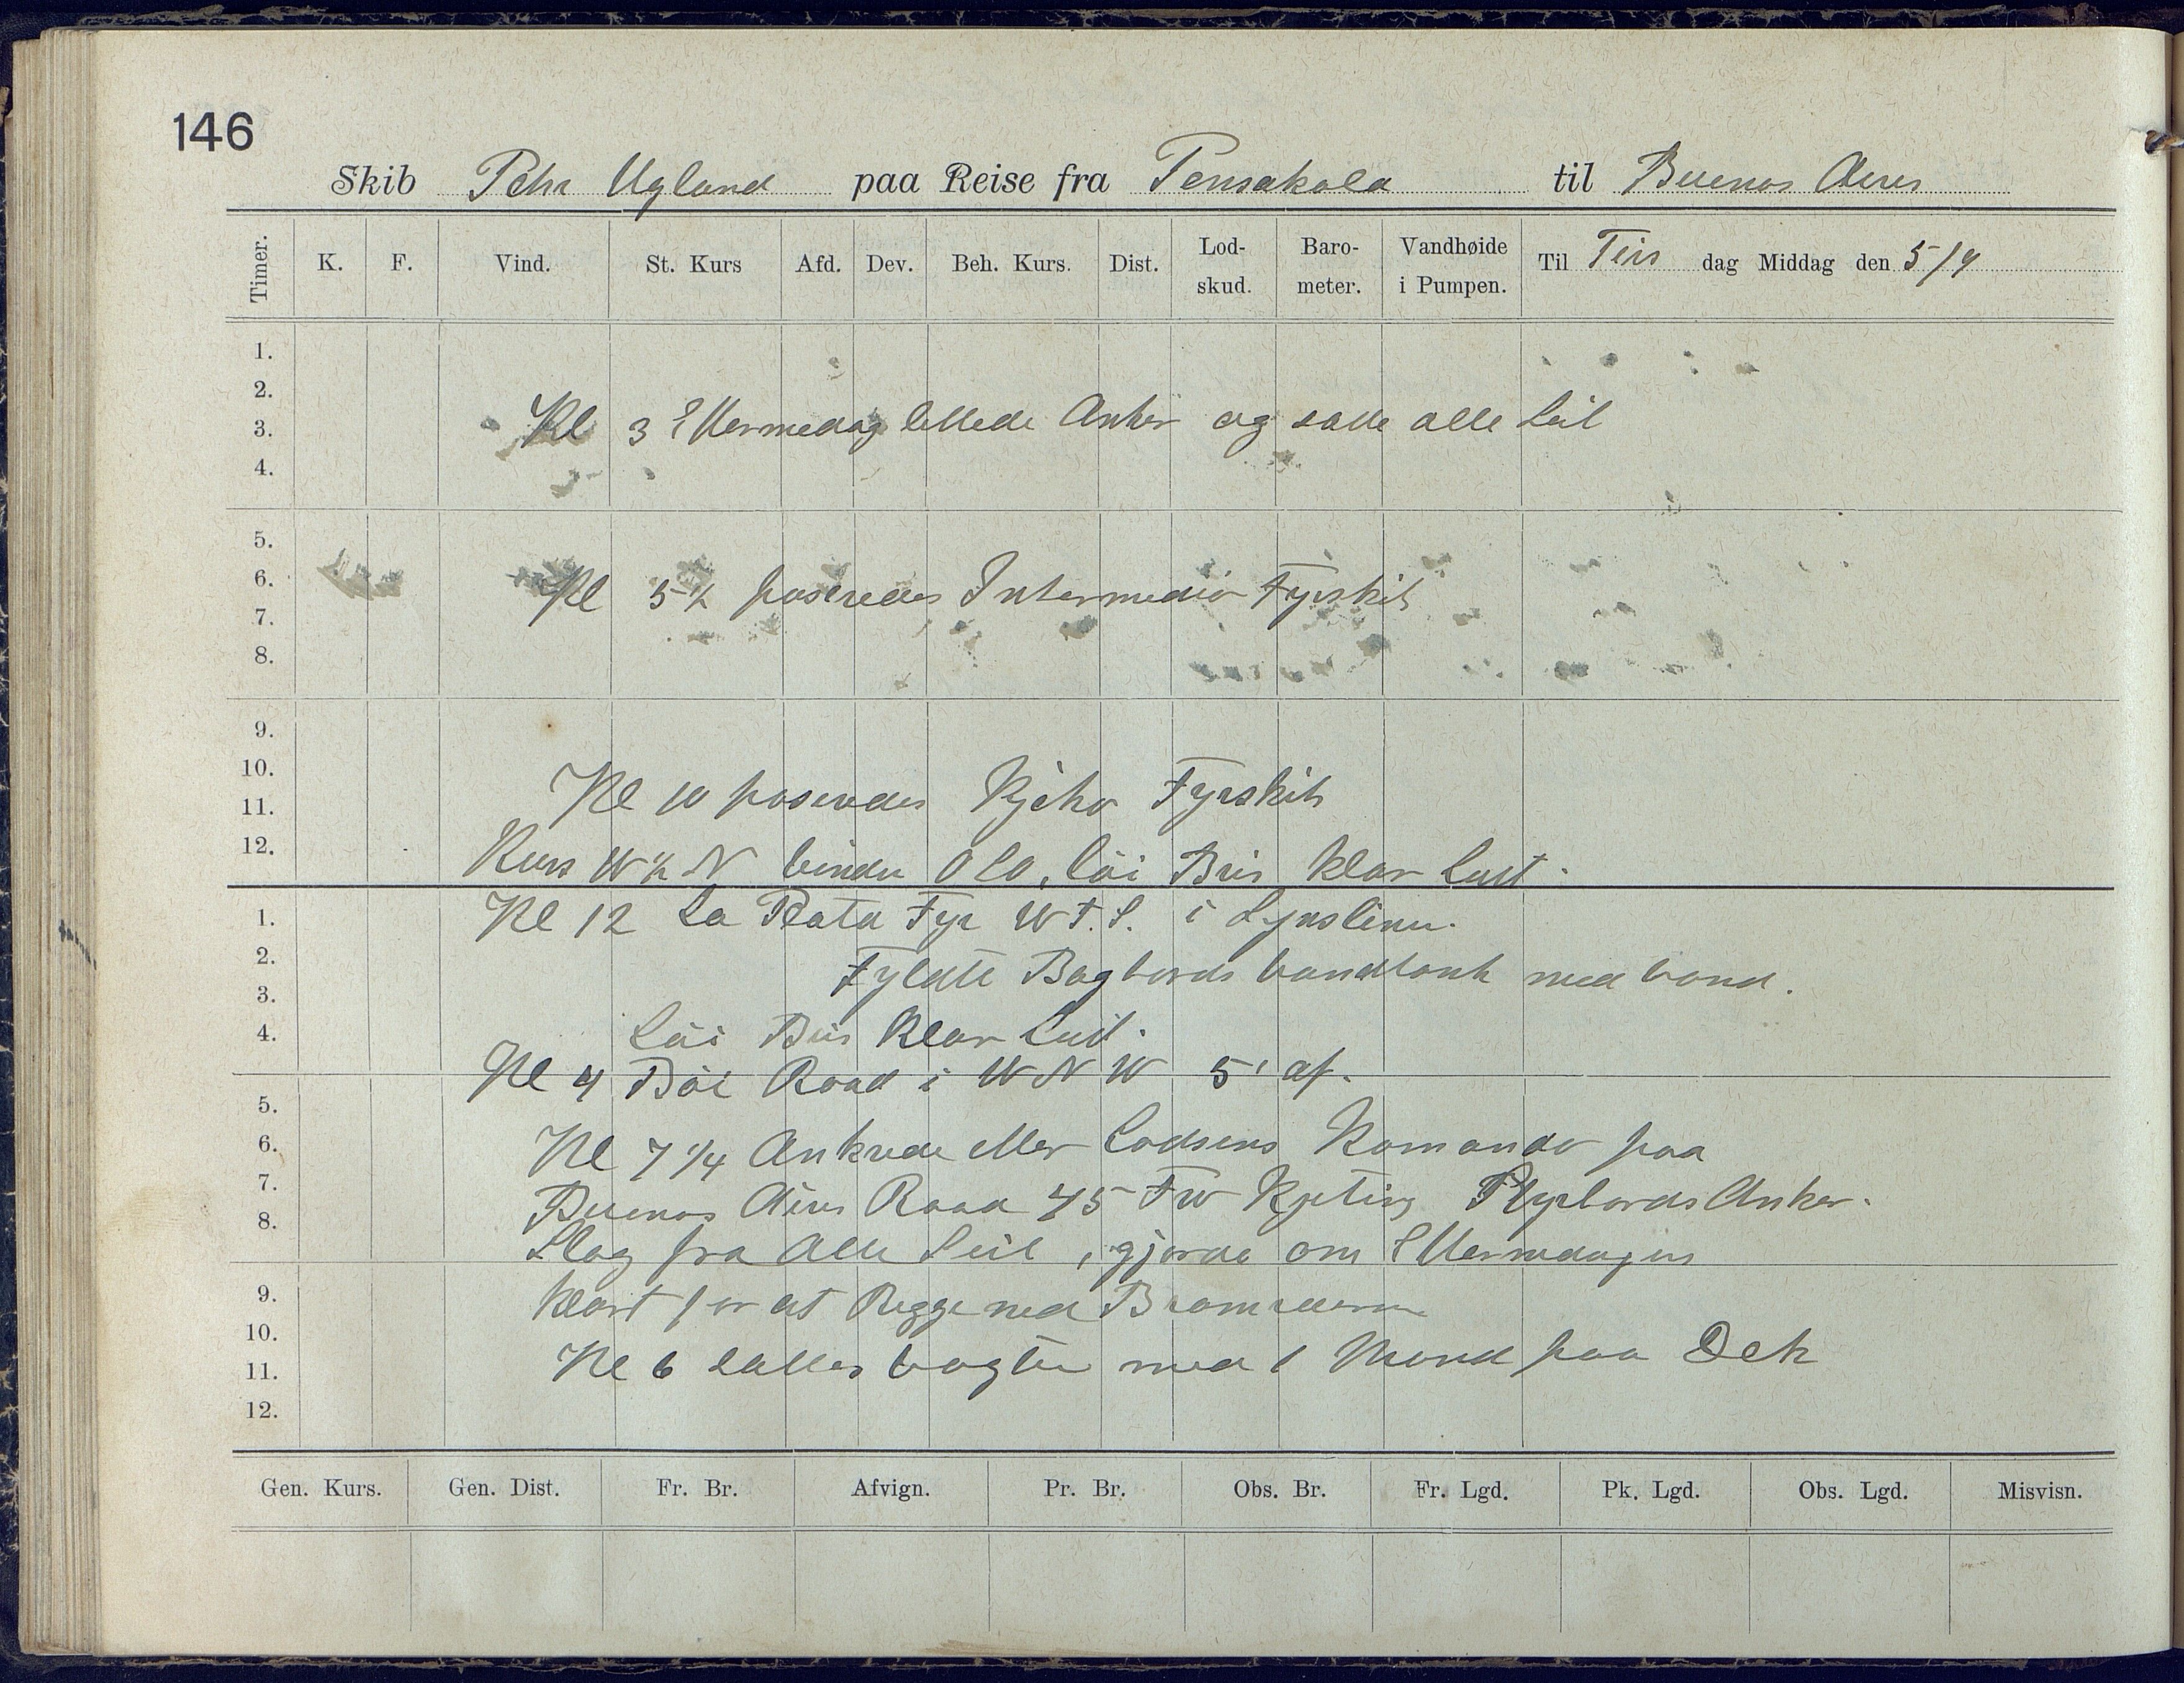 146
Skib Peter Ugland paa Reise fra Pensakola til Buenos Aires
Timer. K. F. Vind. St. Kurs Afd. Dev. Beh. Kurs. Dist. Lod-skud. Baro-meter. Vandhøide i Pumpen. Til Tirs dag Middag den 5/9
1.
2.
3. Kl 3 Ettermedag lettede Anker og satte alle Seil
4.
5.
6. Kl 5½ paseredes Intermedio Fyrskib
7.
8.
9.
10. Kl 10 paseredes Fyrskib
11.
12. Kurs W½N vindu OSO, löi Bris klar Luft.
1. Kl 12 La Plata Fyr i Synslinu.
2. Fyldte Bagbords vandtank med vand.
3.
4. Löi Bris Klar Luft.
Kl 4 Böi Raad i WNW 5' af.
5.
6. Kl 7¼ Ankrede etter Lodsens Komando paa
7. Buenos Aires Raad 45 Fv Kjeting Styrbords Anker.
8. Slog fra Alle Seil, gjorde om Ettermedagen
9. Klart for at Rigge ned
10.
11. Kl 6 sattes vagten med 1 Mand paa Dek
12.
Gen. Kurs. Gen. Dist. Fr. Br. Afvign. Pr. Br. Obs. Br. Fr. Lgd. Pk. Lgd. Obs. Lgd. Misvisn.